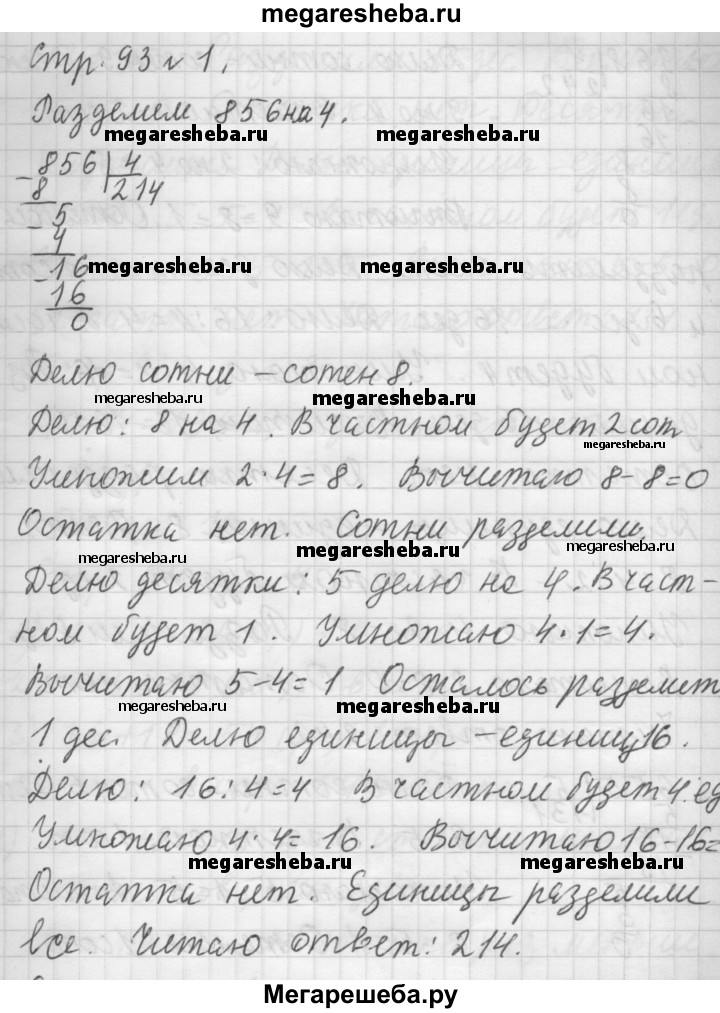 megaresheba.ru
Стр. 93 № 1.
Разделим 856 на 4.
megaresheba.ru megaresheba.ru
- 856 | 4
8 214
- 5
4
- 16 megaresheba.ru megaresheba.ru
16
0
Делю сотни – сотен 8.
megaresheba.ru megaresheba.ru
Делю: 8 на 4. В частном будет 2 сот
megaresheba.ru
Умножим 2·4=8. Вычитаю 8-8=0
Остатка нет. Сотни разделили.
megaresheba.ru megaresheba.ru megaresheba.ru
Делю десятки: 5 делю на 4. В част-
ном будет 1. Умножаю 4·1=4.
Вычитаю 5-4=1 Осталось разделит
megaresheba.ru megaresheba.ru
1 дес. Делю единицы – единиц 16.
Делю: 16:4=4 В частном будет 4 ед
Умножаю 4·4=16. Вычитаю 16-16=
megaresheba.ru megaresheba.ru
Остатка нет. Единицы разделили
все. Читаю ответ: 214.
megaresheba.ru megaresheba.ru
Мегарешеба.ру